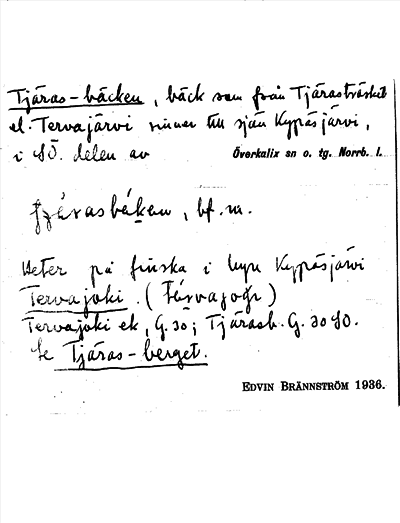 Tjäras-bäcken, bäck som från Tjärasträsket
el. Tervajärvi rinner till sjön Kypäsjärvi,
i SÖ. delen av Överkalix sn o. tg. Norrb. l.
bf. m.
Heter på finska i byn Kypäsjärvi
Tervajoki.
Tervajoki ek, G. 30; Tjärasb. G. 30 SO.
Se Tjäras-berget.
EDVIN BRÄNNSTRÖM 1936.